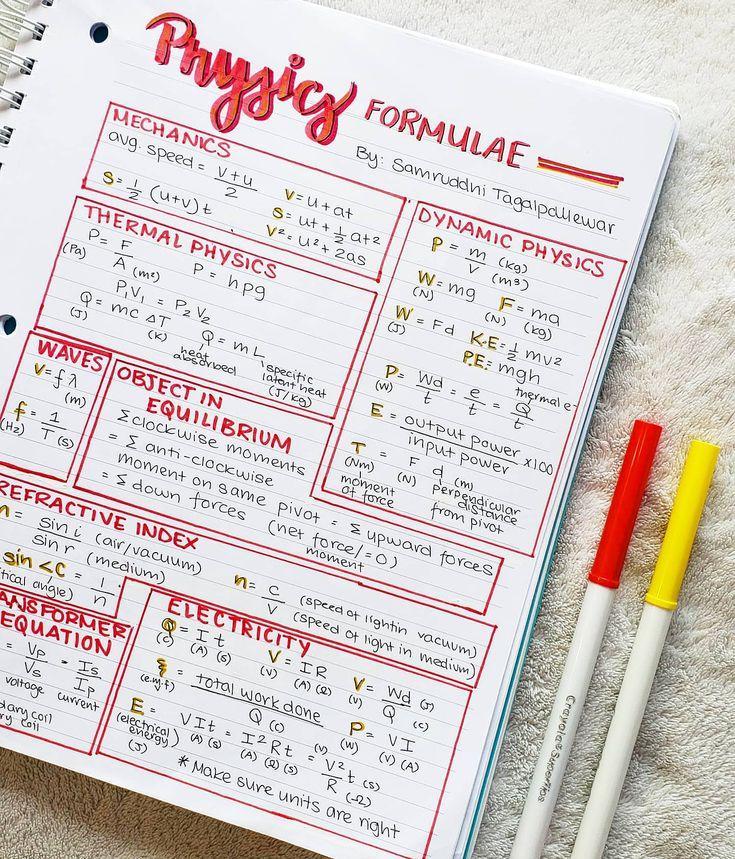 Physics FORMULAE
By: Samruddhi Tagalpallewar
MECHANICS
avg. speed = v+u / 2
s = 1/2 (u+v) t
v = u + at
s = ut + 1/2 at2
v2 = u2 + 2as
THERMAL PHYSICS
P = F / A (m2)
(Pa)
P = hρg
P1V1 = P2V2
Q = mc ΔT
(J) (K)
Q = mL
heat absorbed
specific latent heat (J/kg)
DYNAMIC PHYSICS
P = m (kg) / V (m3)
W = mg
(N)
F = ma
(N) (kg)
W = Fd
(J)
K.E = 1/2 mv2
P.E = mgh
P = Wd / t = e / t = Q / t
(W)
thermal e
E = output power / input power x100
T = F d (m)
(Nm) (N)
moment of force
perpendicular distance from pivot
WAVES
v = f λ
(m)
f = 1 / T (s)
(Hz)
OBJECT IN EQUILIBRIUM
Σ clockwise moments
= Σ anti-clockwise
moment on same pivot = Σ upward forces
= Σ down forces (net force/ = 0)
moment
REFRACTIVE INDEX
n = sin i / sin r (air/vacuum) (medium)
sin <c = 1 / n
tical angle)
n = c / v (speed of light in vacuum)
(speed of light in medium)
ANSFORMER
EQUATION
= Vp / Vs = Is / Ip
voltage current
dary coil
ry coil
ELECTRICITY
Q = I t
(C) (A) (s)
V = IR
(V) (A) (Ω)
V = Wd (J) / Q (C)
(V)
ξ = total work done / Q (C)
(e.m.f)
E = VIt = I2Rt = V2 t (s) / R (Ω)
(electrical energy)
(J)
(V) (A) (s) (A) (Ω) (s) (V)
P = VI
(W) (V) (A)
* Make sure units are right
Crayola SuperTips